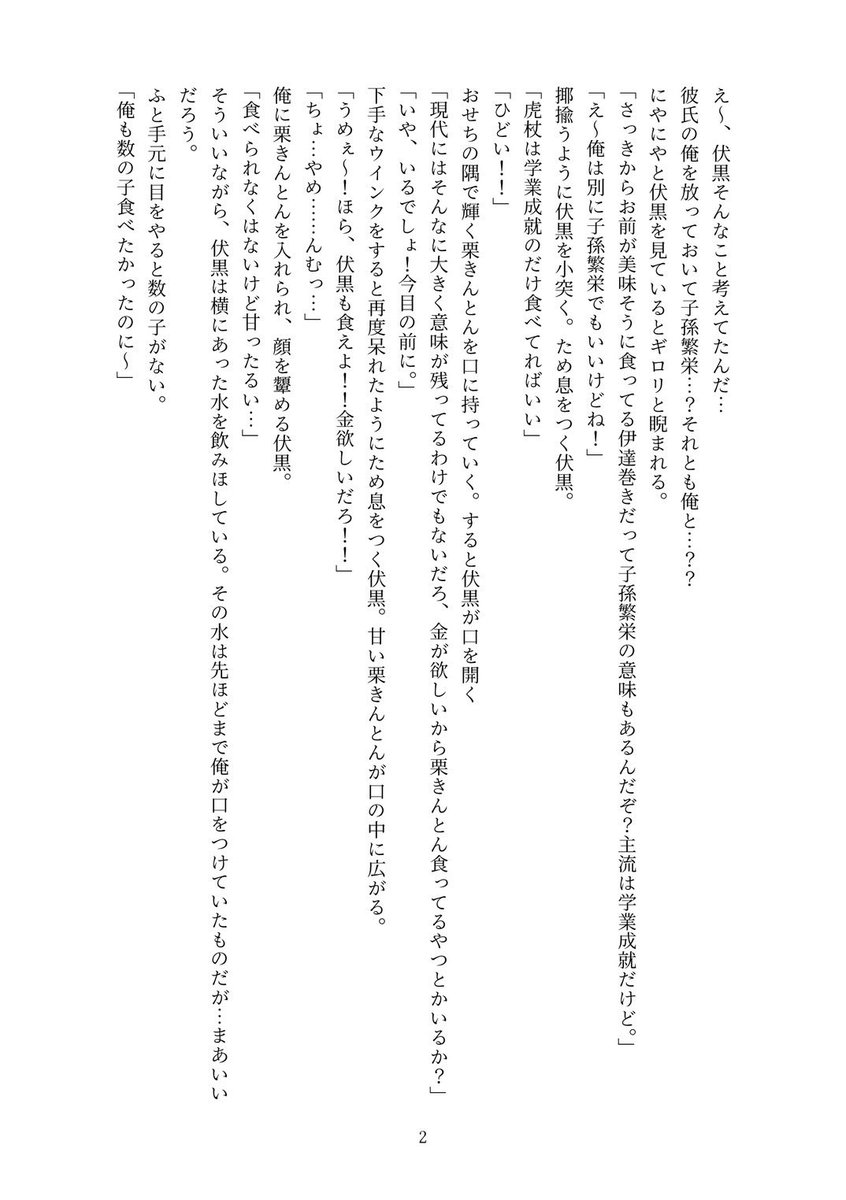 え〜、伏黒そんなこと考えてたんだ…
彼氏の俺を放っておいて子孫繁栄…？それとも俺と…？？
にやにやと伏黒を見ているとギロリと睨まれる。
「さっきからお前が美味そうに食ってる伊達巻きだって子孫繁栄の意味もあるんだぞ？主流は学業成就だけど。」
「え〜俺は別に子孫繁栄でもいいけどね！」
揶揄うように伏黒を小突く。ため息をつく伏黒。
「虎杖は学業成就のだけ食べてればいい」
「ひどい！！」
おせちの隅で輝く栗きんとんを口に持っていく。すると伏黒が口を開く
「現代にはそんなに大きく意味が残ってるわけでもないだろ、金が欲しいから栗きんとん食ってるやつとかいるか？」
「いや、いるでしょ！今目の前に。」
下手なウインクをすると再度呆れたようにため息をつく伏黒。甘い栗きんとんが口の中に広がる。
「うめぇ〜！ほら、伏黒も食えよ！！金欲しいだろ！！」
「ちょ…やめ……んむっ…」
俺に栗きんとんを入れられ、顔を顰める伏黒。
「食べられなくはないけど甘ったるい…」
そういいながら、伏黒は横にあった水を飲みほしている。その水は先ほどまで俺が口をつけていたものだが…まあいい
だろう。
ふと手元に目をやると数の子がない。
「俺も数の子食べたかったのに〜」
2